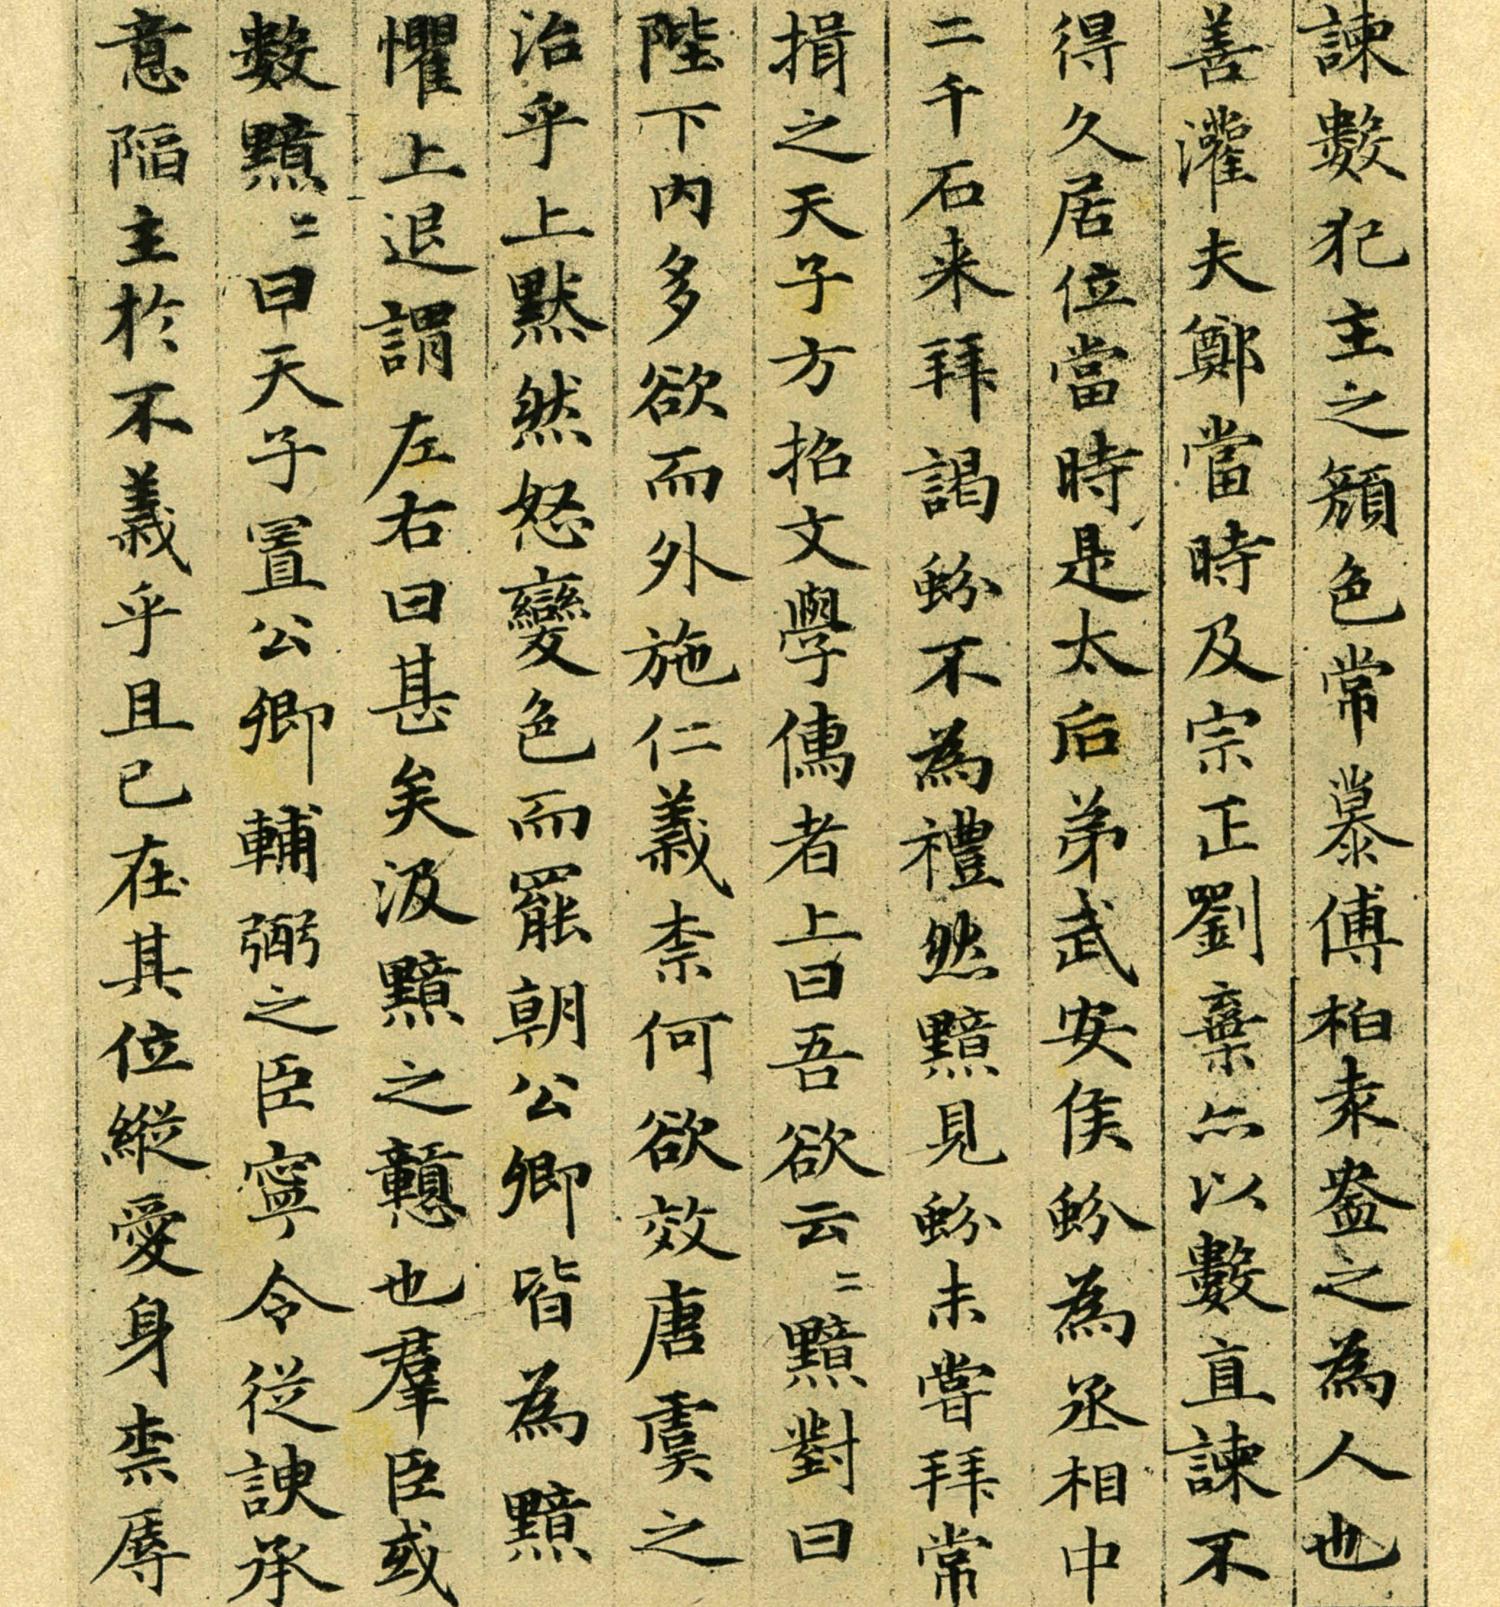 諫數犯主之顏色常慕傅柏袁盎之為人也
善灌夫鄭當時及宗正劉棄亦以數直諫不
得久居位當時是太后弟武安侯蚡為丞相中
二千石来拜謁蚡不為禮然黯見蚡未嘗拜常
揖之天子方招文學儒者上曰吾欲云〻黯對曰
陛下內多欲而外施仁義柰何欲效唐虞之
治乎上黙然怒變色而罷朝公卿皆為黯
懼上退謂左右曰甚矣汲黯之戇也羣臣或
數黯〻曰天子置公卿輔弼之臣寧令従諛承
意陷主於不義乎且已在其位縦愛身柰辱